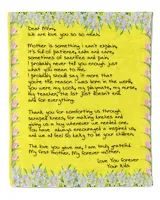 Dear Mom,
We are love you so so much.
Mother is something I can't explain,
it's full of patience, calm and care,
sometimes of sacrifice and pain.
I probably never tell you enough just
what you mean to me.
I probably should say it more that
you're the reason I was born in the world,
you were my cook, my playmate, my nurse,
my teacher, the list just doesn't end
and for everything.
Thank you for comforting us through
scraped knees, for making kisses and
giving us a hug whenever we needed one.
You have always encouraged & inspired us,
and we all feel so lucky to be your children.
The love you gave me, I am truly grateful
My first mother, My forever mother.
Love You Forever
Your kids